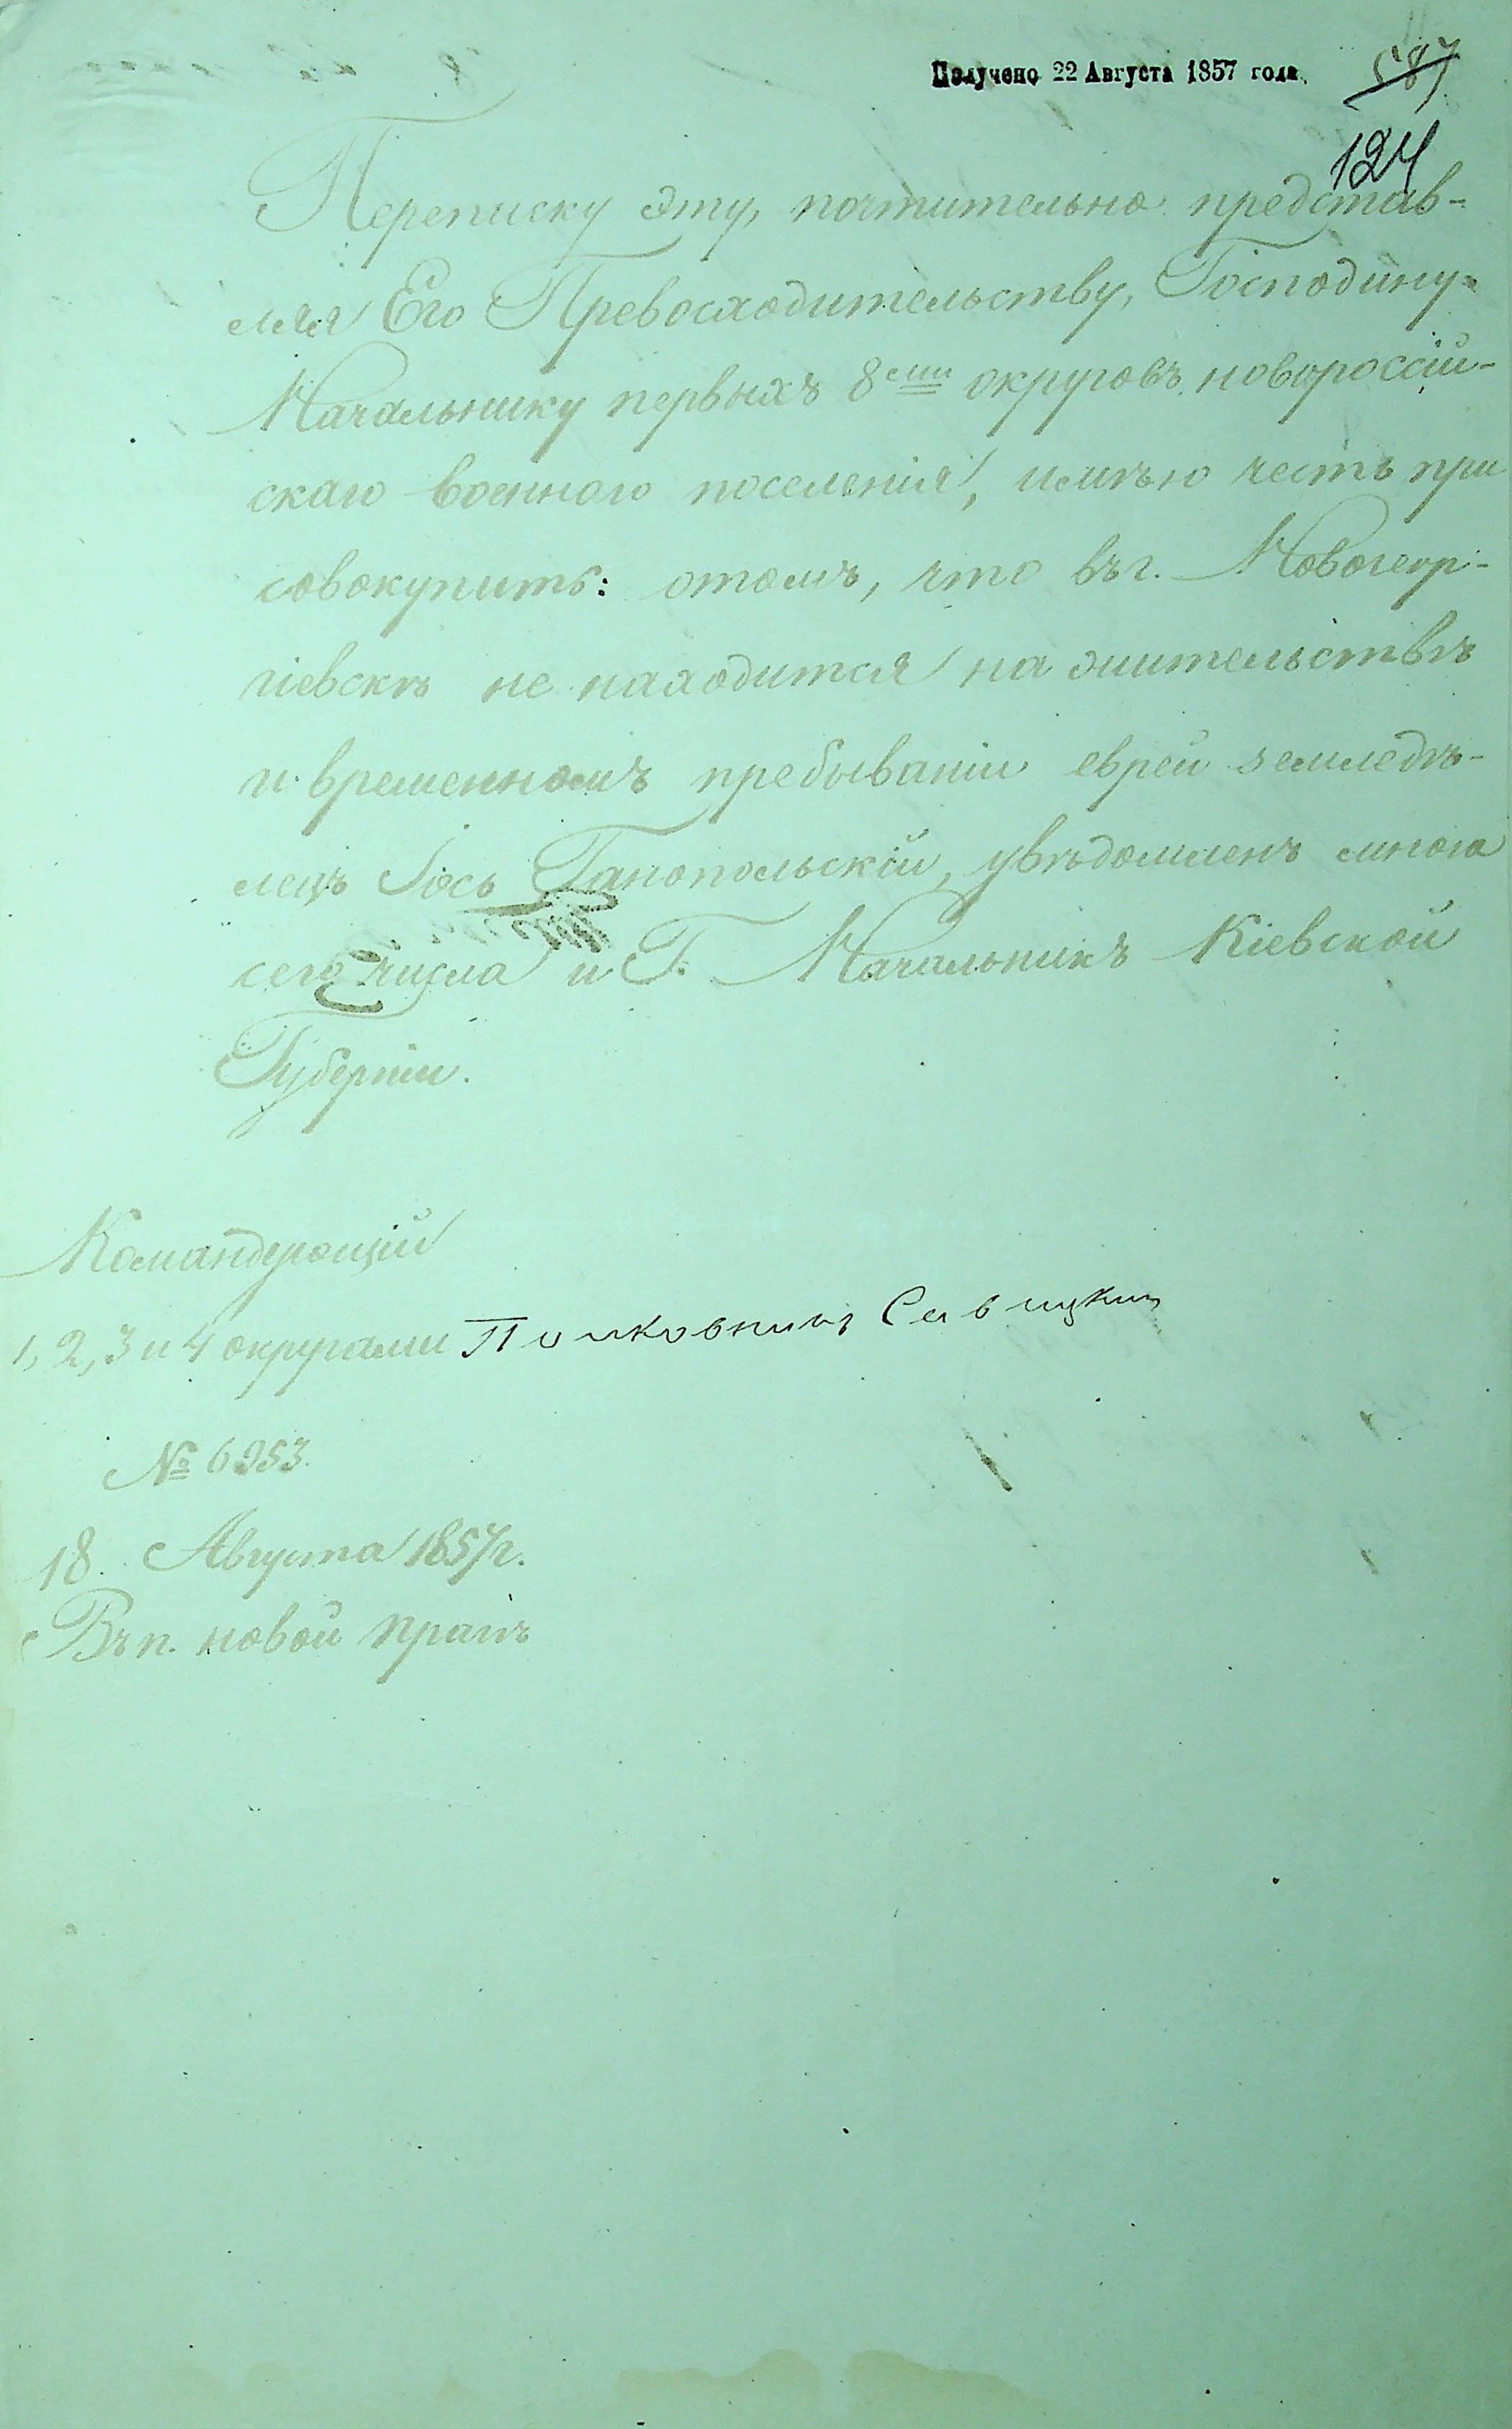 Получено 22 Августа 1857 года.
587
124
Переписку эту, почтительно представ-
ляя Его Превосходительству, Господину
Начальнику первыхъ 8ми округовъ новороссій-
скаго военного поселенія, имѣю честь при
совокупить: отомъ, что въ г. Новогеор-
гіевскѣ не находится на жительствѣ
и временномъ пребываніи еврей земледѣ-
лецъ Іось Ганопольскій, увѣдомленъ мною
сего числа и Г. Начальникъ Кіевской
Губерніи.
Командующій
1, 2, 3 и 4 округами Полковникъ Савицкій
№ 6953.
18. Августа 1857 г.
Въ п. новой прагѣ